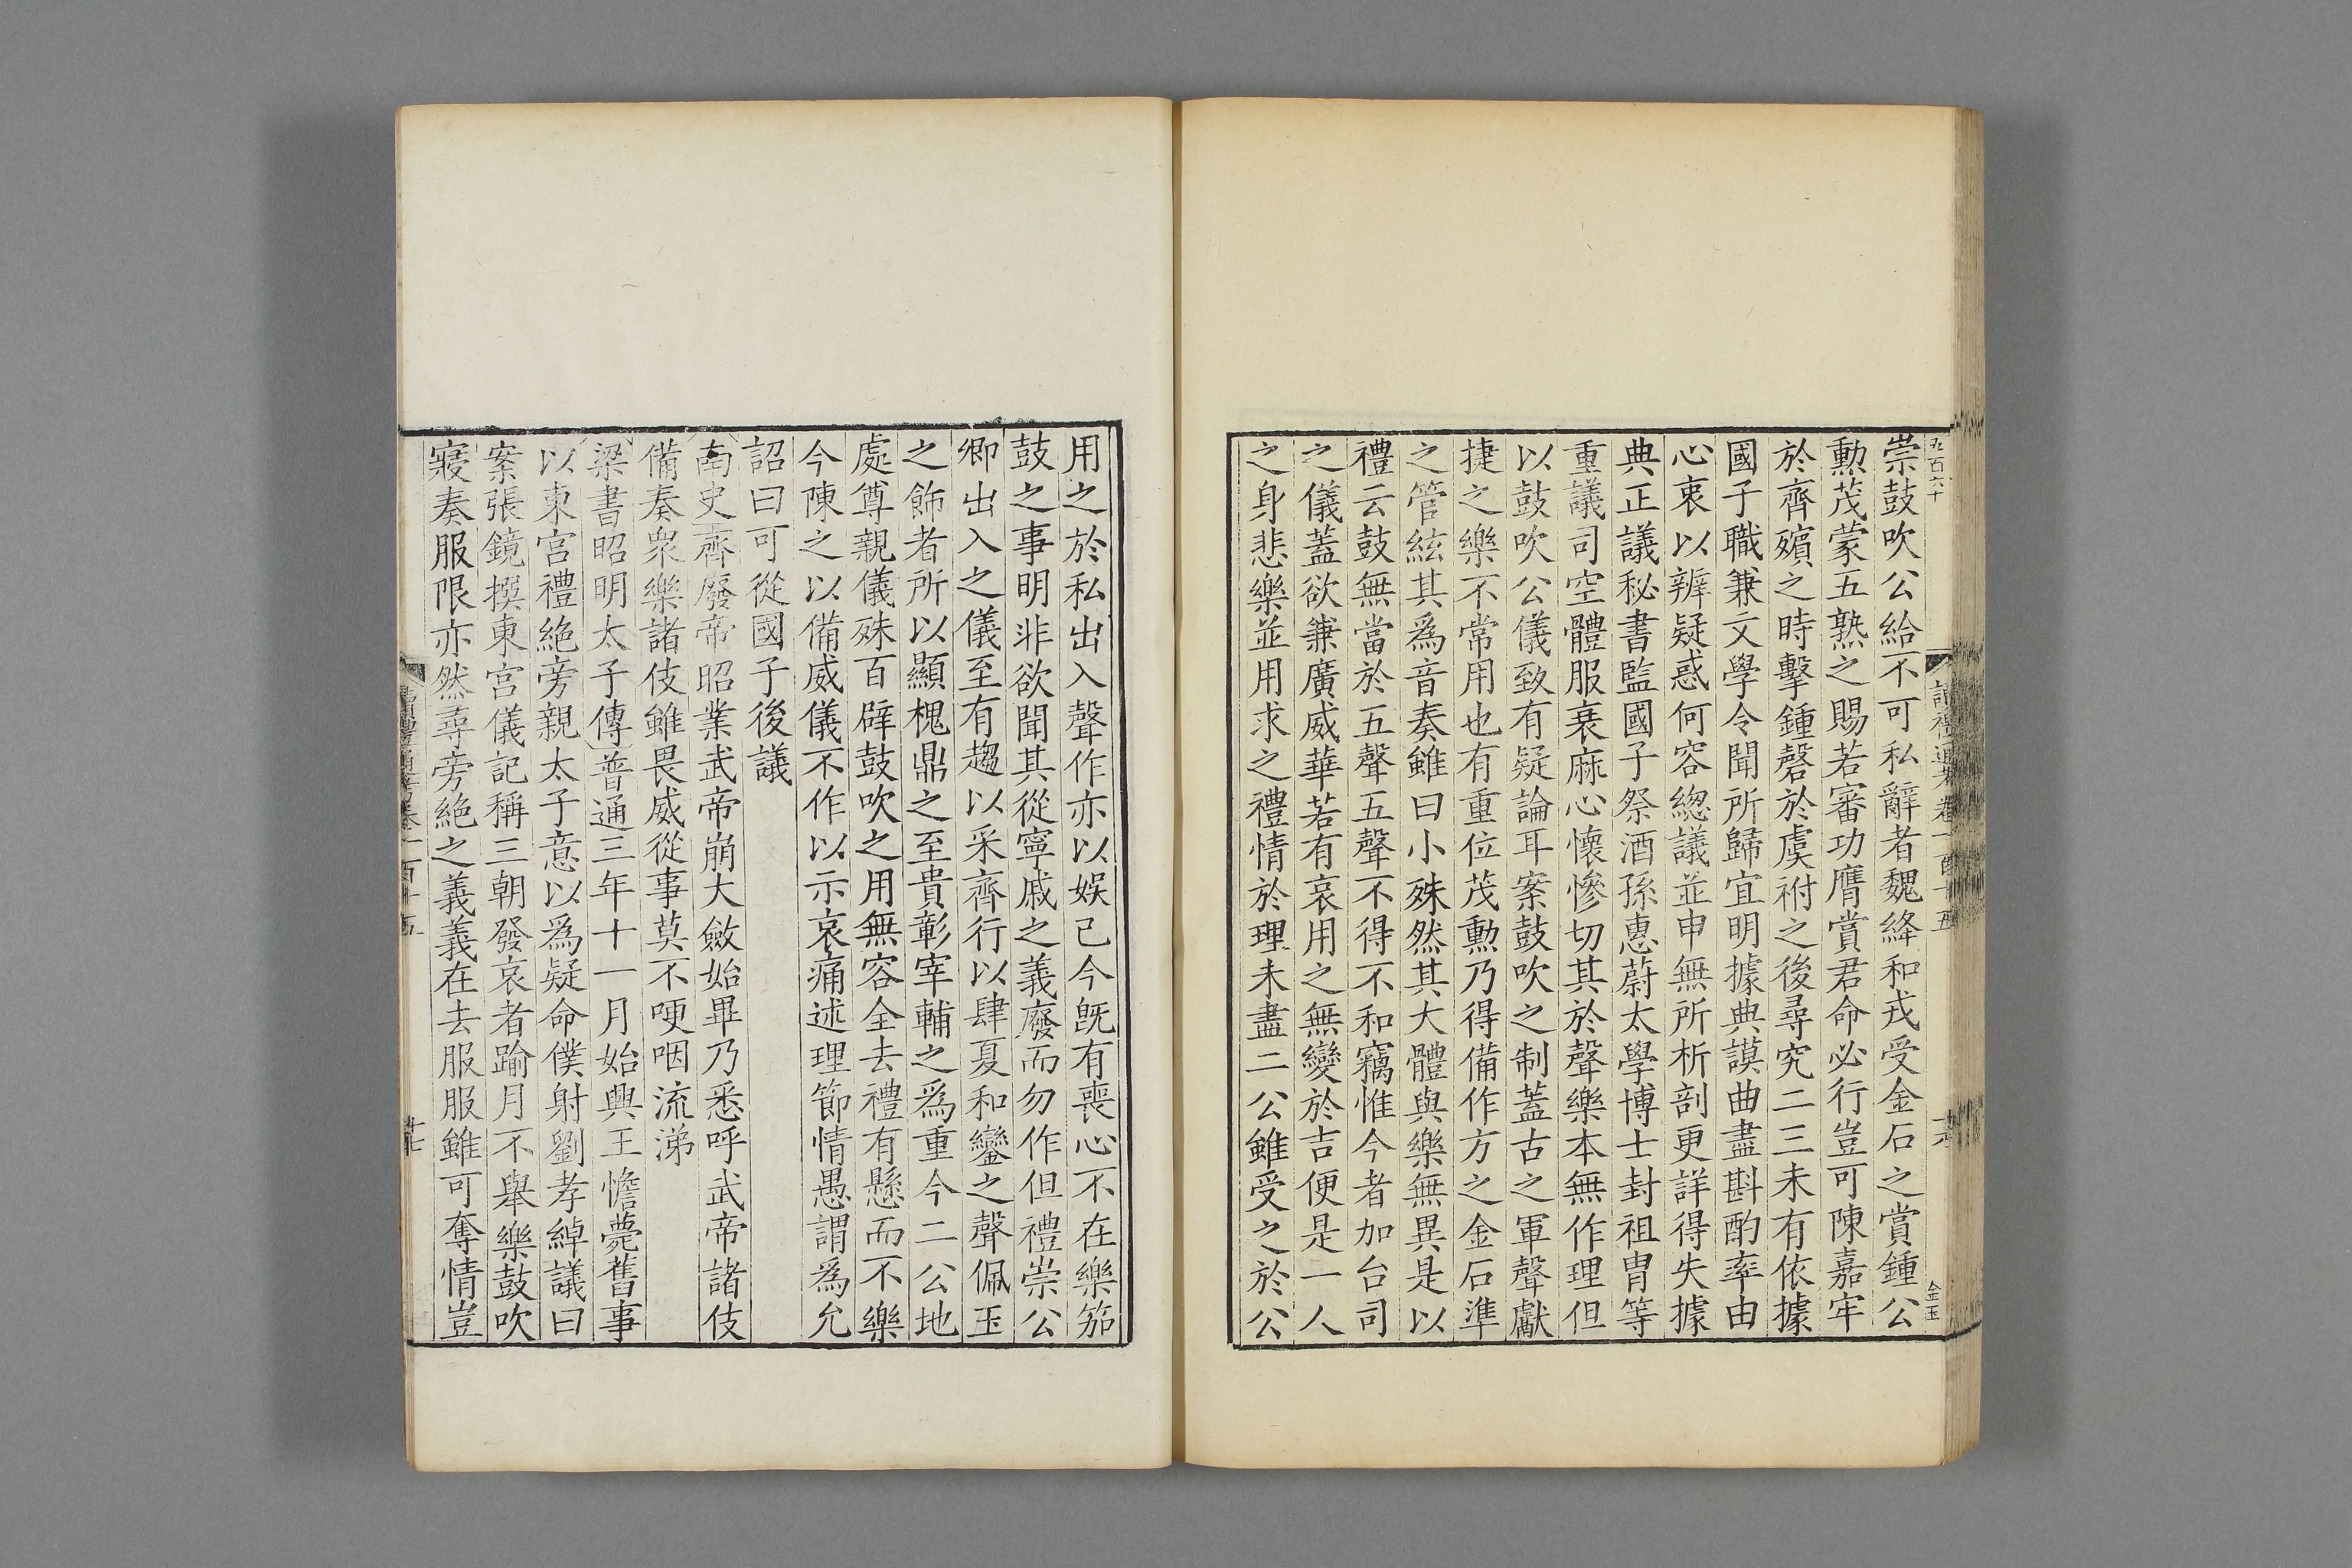 五百六十
讀禮通考卷一百十五
十六
金玉
崇鼓吹公給不可私辭者魏絳和戎受金石之賞鍾公
勳茂蒙五熟之賜若審功膺賞君命必行豈可陳嘉牢
於齊殯之時擊鍾磬於虞祔之後尋究二三未有依據
國子職兼文學令聞所歸宜明據典謨曲盡斟酌率由
心衷以辨疑惑何容緫議並申無所析剖更詳得失據
典正議秘書監國子祭酒孫惠蔚太學博士封祖胄等
重議司空體服衰麻心懷慘切其於聲樂本無作理但
以鼓吹公儀致有疑論耳案鼓吹之制蓋古之軍聲獻
捷之樂不常用也有重位茂勳乃得備作方之金石準
之管絃其爲音奏雖曰小殊然其大體與樂無異是以
禮云鼓無當於五聲五聲不得不和竊惟今者加台司
之儀蓋欲兼廣威華若有哀用之無變於吉便是一人
之身悲樂並用求之禮情於理未盡二公雖受之於公
用之於私出入聲作亦以娛己今旣有喪心不在樂笳
鼓之事明非欲聞其從寧戚之義廢而勿作但禮崇公
卿出入之儀至有趨以采齊行以肆夏和鑾之聲佩玉
之飾者所以顯槐鼎之至貴彰宰輔之爲重今二公地
處尊親儀殊百辟鼓吹之用無容全去禮有懸而不樂
今陳之以備威儀不作以示哀痛述理節情愚謂爲允
詔曰可從國子後議
南史齊廢帝昭業武帝崩大斂始畢乃悉呼武帝諸伎
備奏衆樂諸伎雖畏威從事莫不哽咽流涕
梁書昭明太子傳普通三年十一月始興王憺薨舊事
以東宮禮絶旁親太子意以爲疑命僕射劉孝綽議曰
案張鏡撰東宮儀記稱三朝發哀者踰月不舉樂鼓吹
寢奏服限亦然尋旁絶之義義在去服服雖可奪情豈
讀禮通考卷一百十五
十七